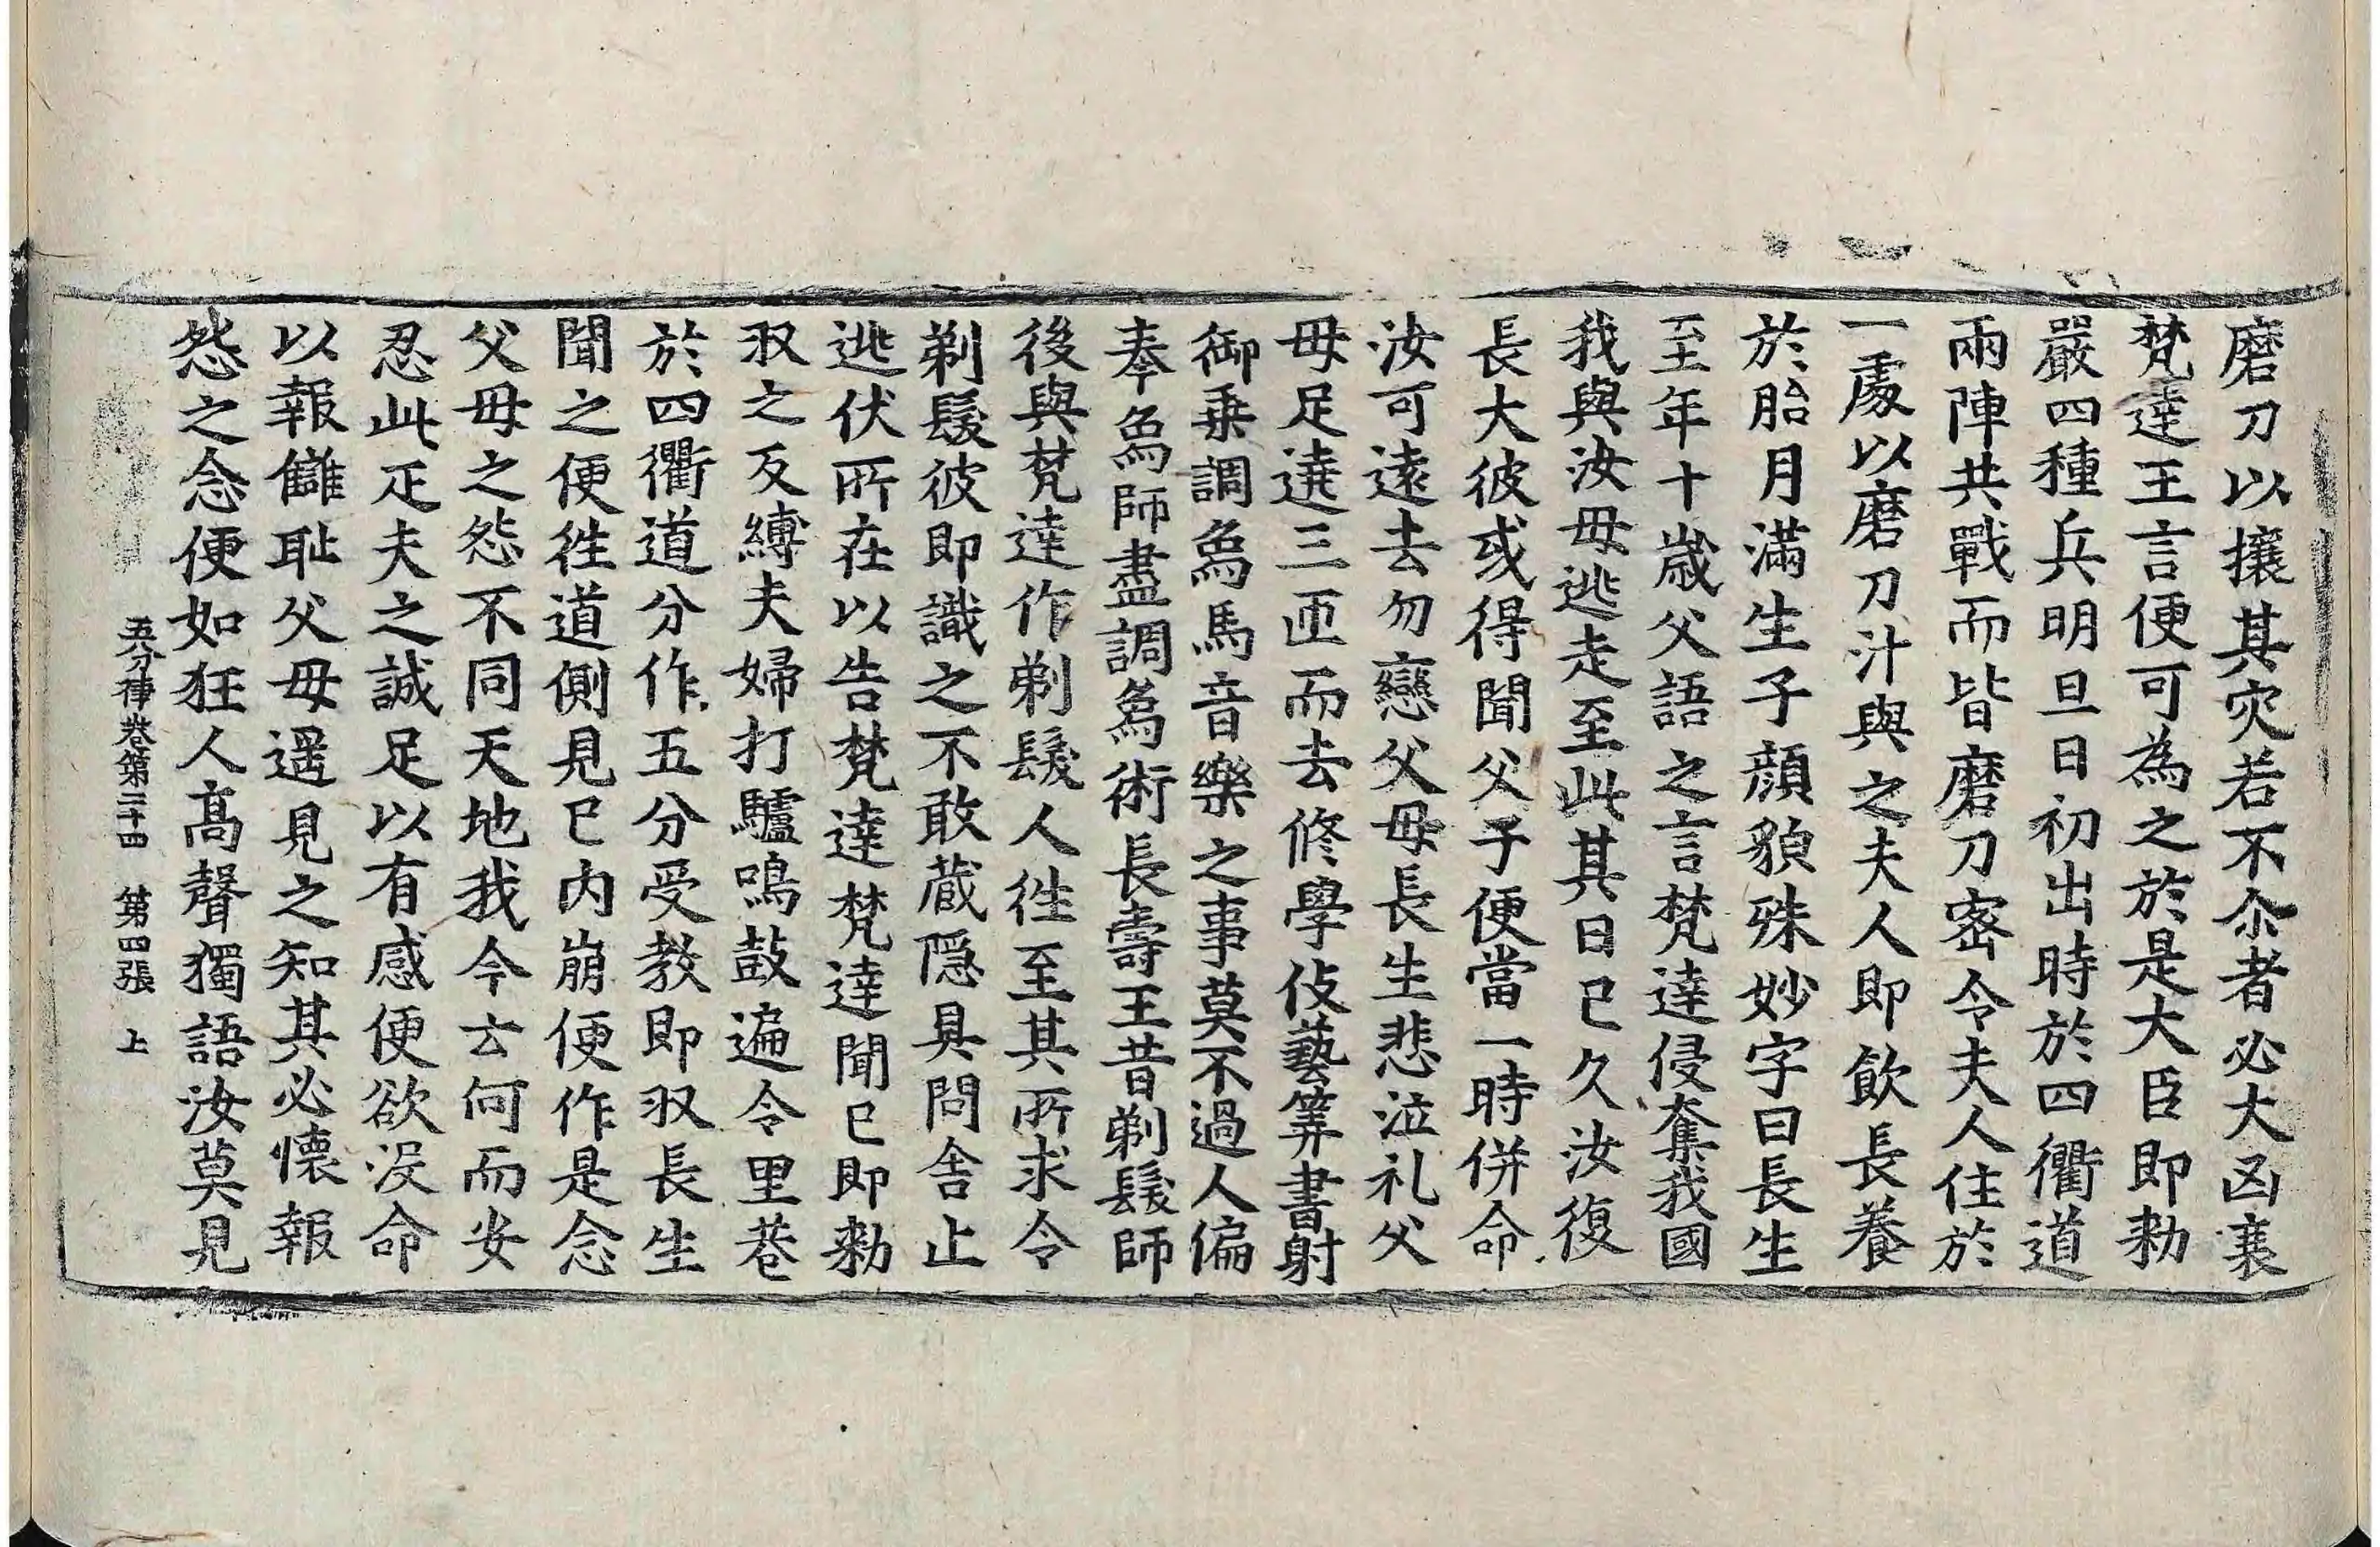 磨刀以攘其灾若不尒者必大凶衰
梵達王言便可為之於是大臣即勑
嚴四種兵明旦日初出時於四衢道
兩陣共戰而皆磨刀密令夫人住於
一處以磨刀汁與之夫人即飲長養
於胎月滿生子顔貌殊妙字曰長生
至年十歳父語之言梵達侵奪我國
我與汝母逃走至此其日已久汝復
長大彼或得聞父子便當一時併命
汝可遠去勿戀父母長生悲泣礼父
母足遶三匝而去修學伎藝筭書射
御乗調爲馬音樂之事莫不過人偏
奉爲師盡調爲術長壽王昔剃髮師
後與梵達作剃髮人徃至其所求令
剃髮彼即識之不敢蔵隠具問舍止
逃伏所在以告梵達梵達聞已即勑
収之反縛夫婦打驢鳴鼓遍令里巷
於四衢道分作五分受教即収長生
聞之便徃道側見已内崩便作是念
父母之怨不同天地我今云何而安
忍此疋夫之誠足以有感便欲没命
以報讎耻父母遥見之知其必懷報
怨之念便如狂人髙聲獨語汝莫見
五分律卷第二十四 第四張 上